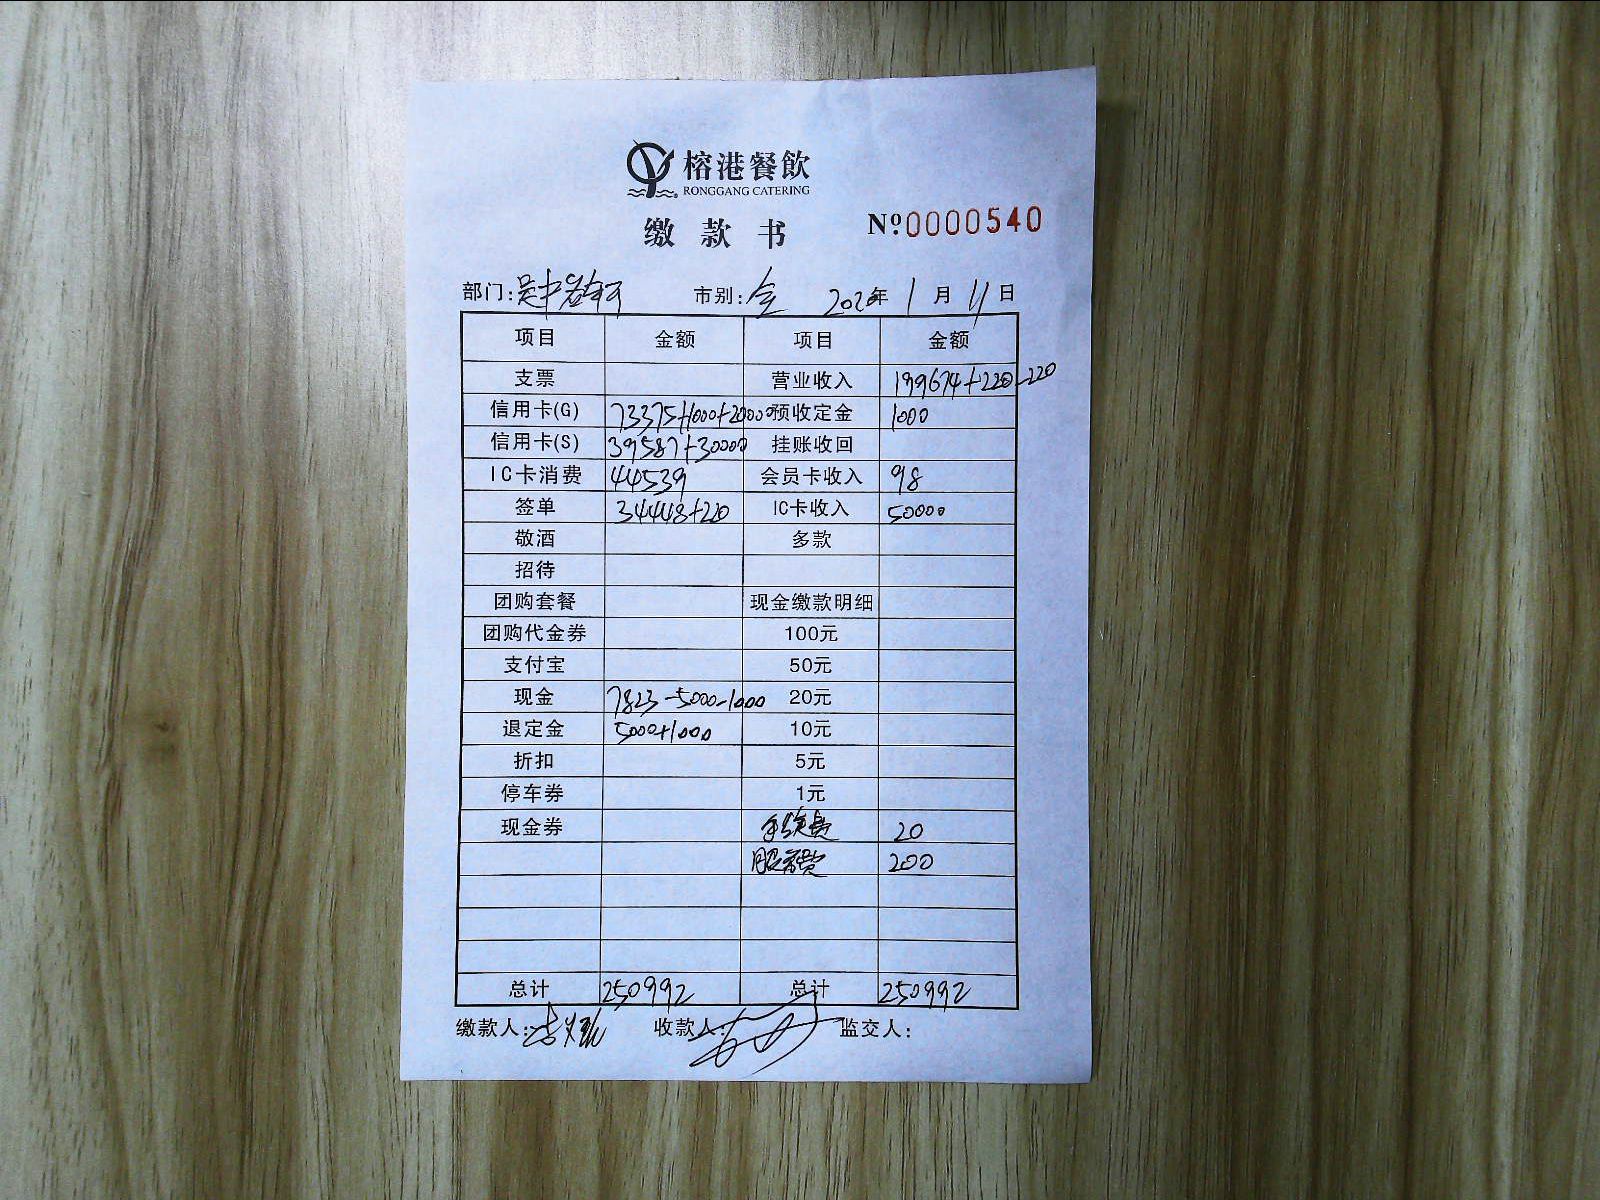 榕港餐飲
RONGGANG CATERING
缴款书
Nº0000540
部门:吴中 市别:全 2020年1月11日
项目 金额 项目 金额
支票 营业收入 199674+220-220
信用卡(G) 73375+1000+20000 预收定金 1000
信用卡(S) 39587+30000 挂账收回
IC卡消费 44539 会员卡收入 98
签单 34448+220 IC卡收入 50000
敬酒 多款
招待
团购套餐 现金缴款明细
团购代金券 100元
支付宝 50元
现金 7823-5000-1000 20元
退定金 5000+1000 10元
折扣 5元
停车券 1元
现金券 手续费 20
服务费 200
总计 250992 总计 250992
缴款人: 收款人: 监交人: